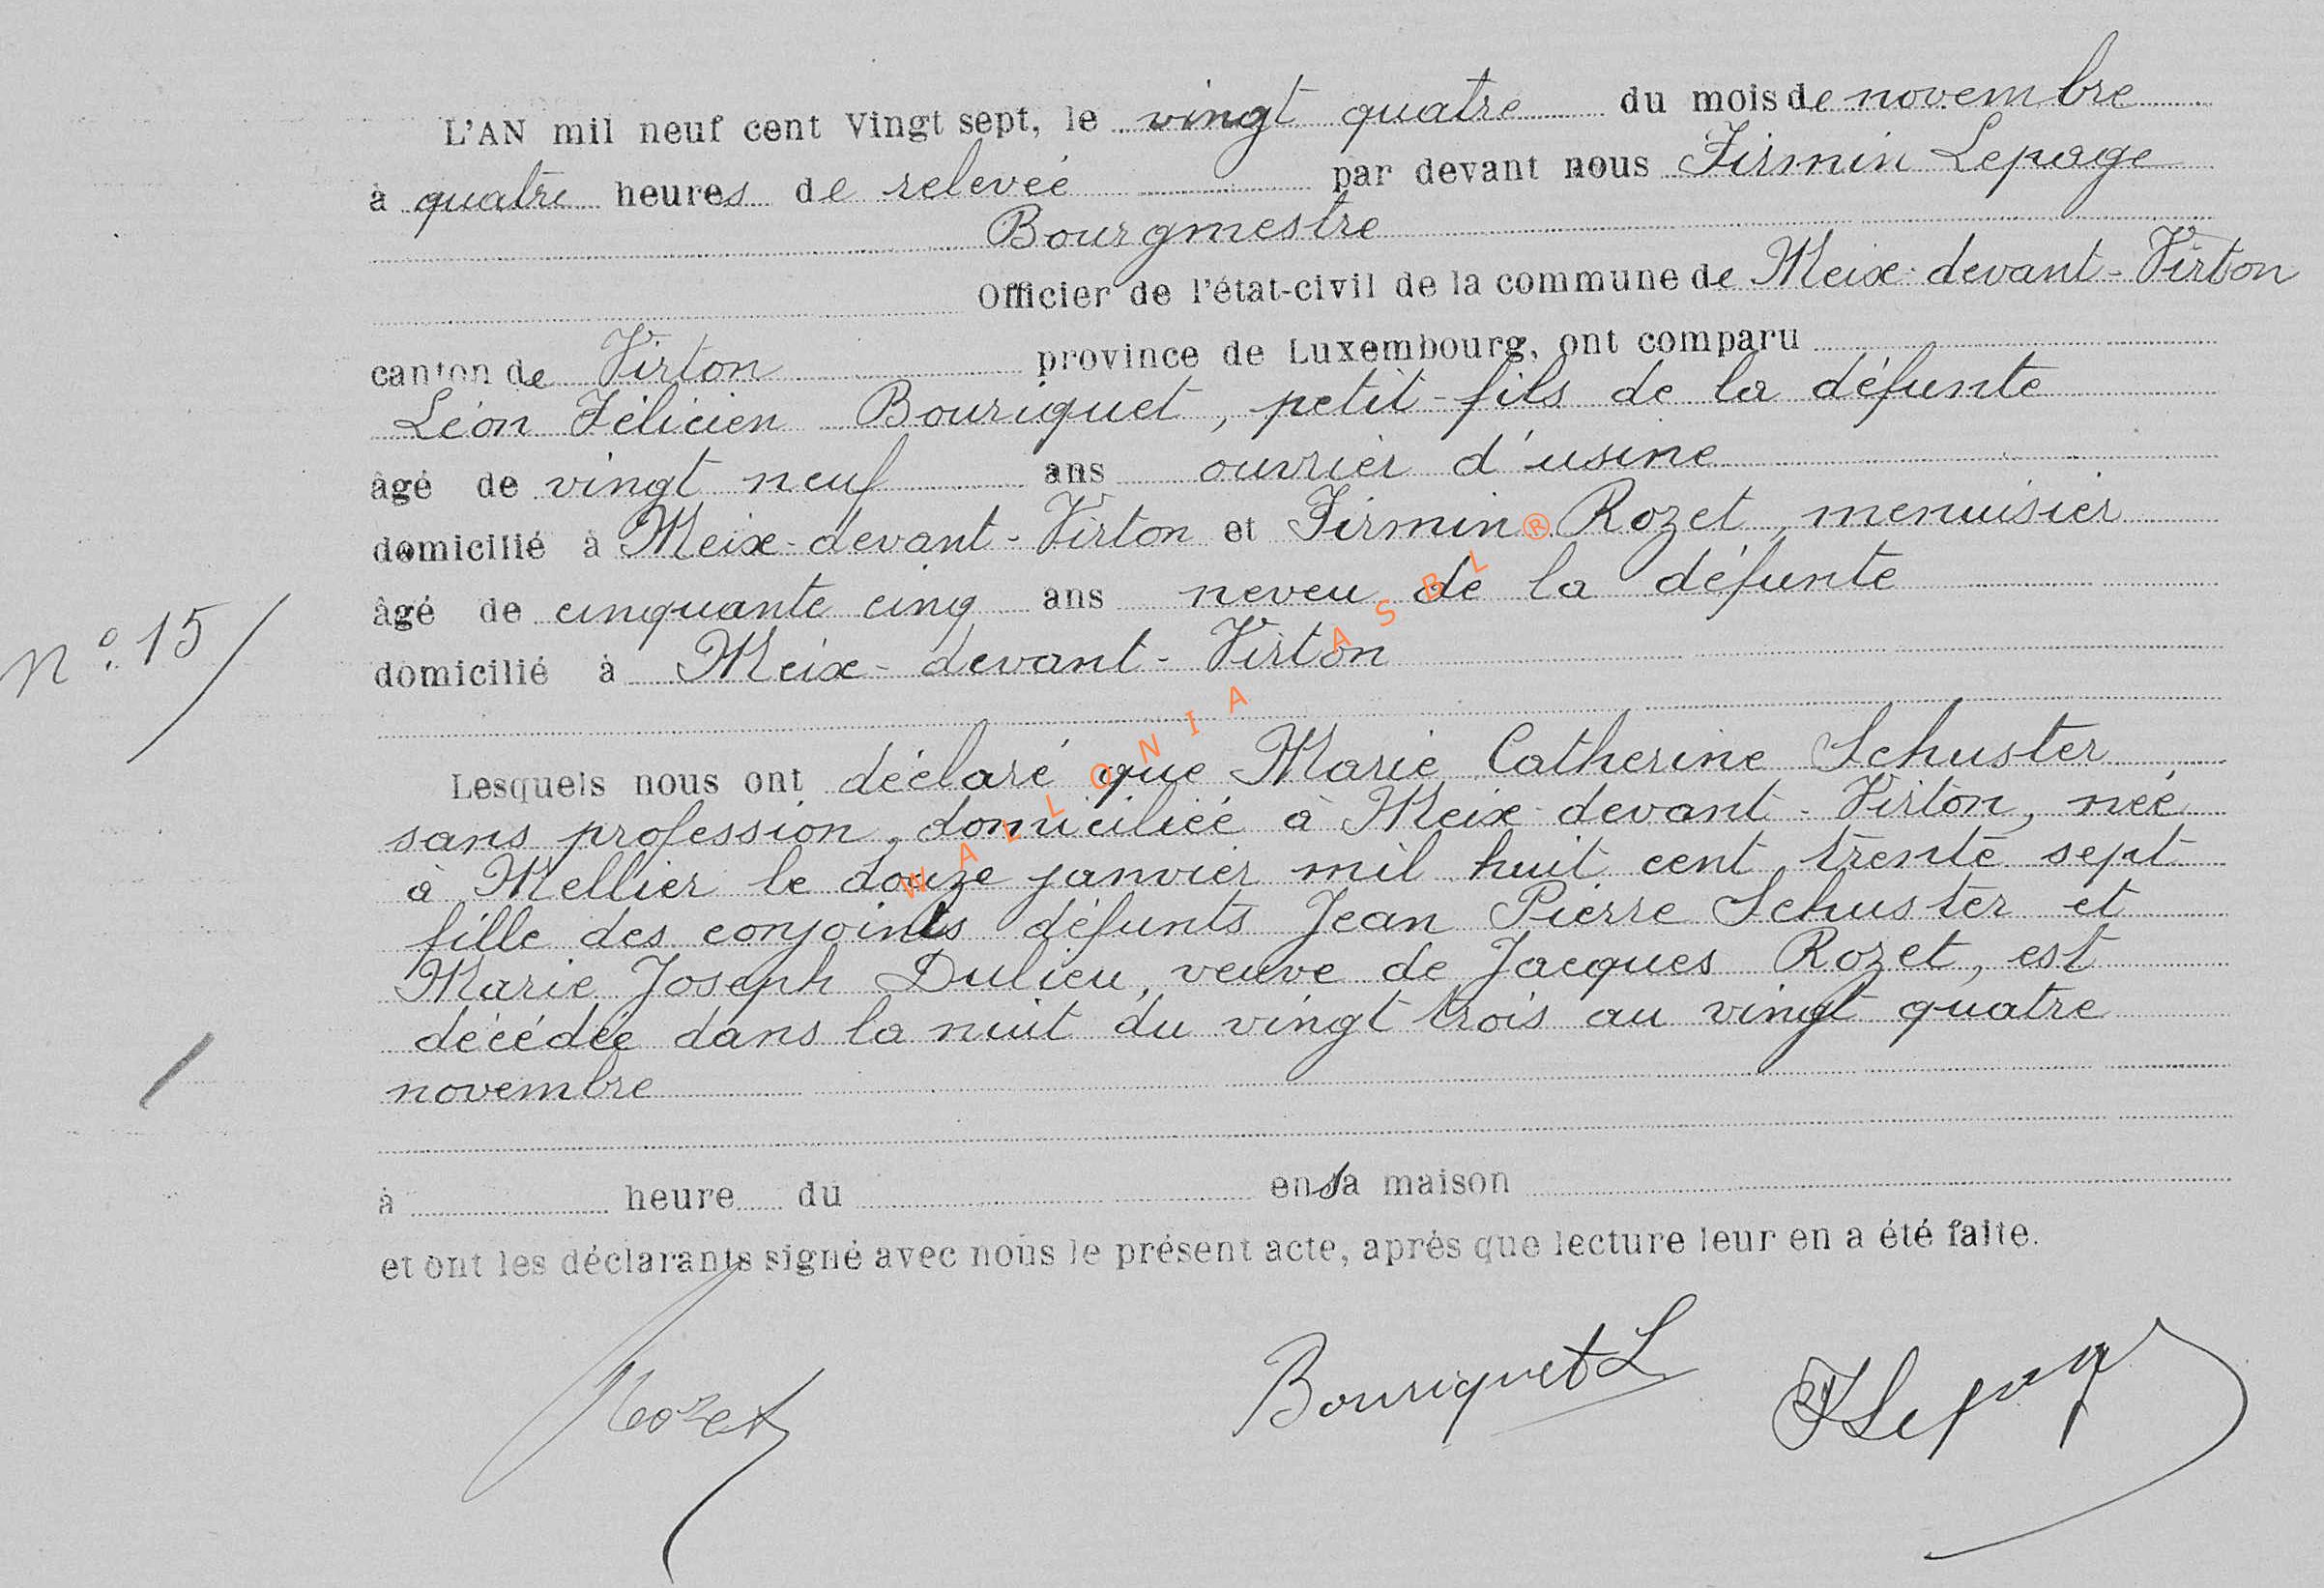 L'AN mil neuf cent Vingt sept, le vingt quatre du mois de novembre
à quatre heures de relevée par devant nous Firmin Lepage
Bourgmestre
Officier de l'état-civil de la commune de Meix-devant-Virton
canton de Virton province de Luxembourg, ont comparu
Léon Félicien Bouriquet, petit-fils de la défunte
âgé de vingt neuf ans ouvrier d'usine
domicilié à Meix-devant-Virton et Firmin Rozet, menuisier
âgé de cinquante cinq ans neveu de la défunte
domicilié à Meix-devant-Virton
N° 15
Lesquels nous ont déclaré que Marie Catherine Schuster
sans profession, domiciliée à Meix-devant-Virton, née
à Mellier le douze janvier mil huit cent trente sept
fille des conjoints défunts Jean Pierre Schuster et
Marie Joseph Dulieu, veuve de Jacques Rozet, est
décédée dans la nuit du vingt trois au vingt quatre
novembre
à heure du en sa maison
et ont les déclarants signé avec nous le présent acte, après que lecture leur en a été faite.
Rozet Bouriquet L FLepage
WALLONIA ASBL ®